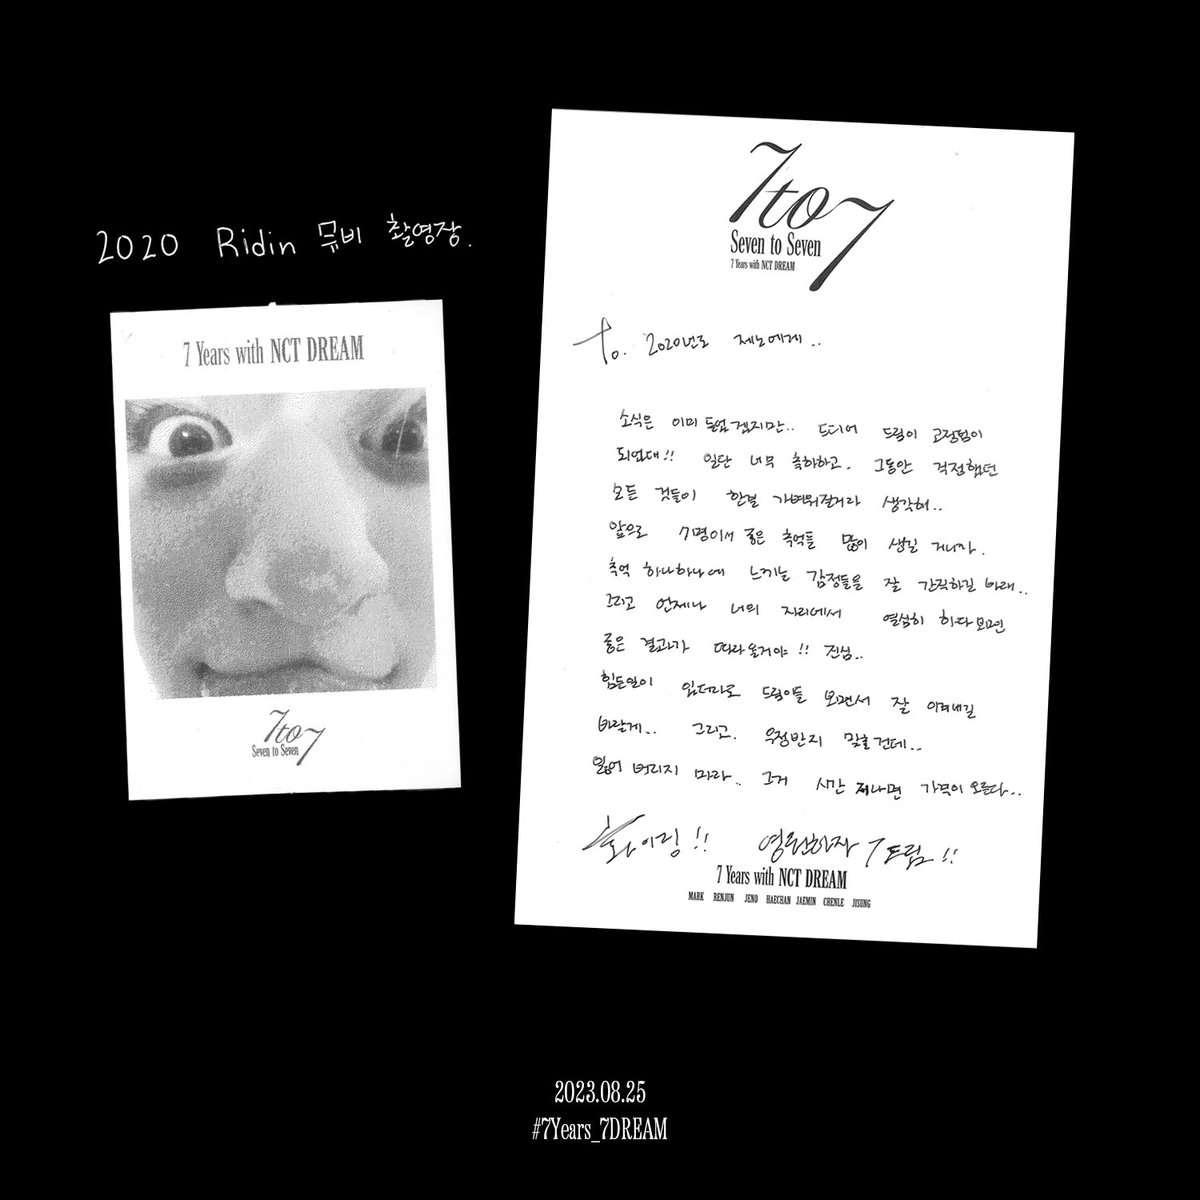 2020 Ridin 뮤비 촬영장.
7 Years with NCT DREAM
7to7
Seven to Seven
7to7
Seven to Seven
7 Years with NCT DREAM
To. 2020년도 제노에게..
소식은 이미 들었겠지만.. 드디어 드림이 고정팀이
되었대!! 일단 너무 축하하고. 그동안 걱정했던
모든 것들이 한결 가벼워질거라 생각해..
앞으로 7명이서 좋은 추억들 많이 생길 거니까.
추억 하나하나에 느끼는 감정들을 잘 간직하길 바래..
그리고 언제나 너의 자리에서 열심히 하다보면
좋은 결과가 따라올거야!! 진심..
힘든일이 있더라도 드림이들 보면서 잘 이겨내길
바랄게.. 그리고. 우정반지 맞출건데..
잃어 버리지 마라.. 그거 시간 지나면 가격이 오른다..
화이팅!! 영원하자 7드림!!
7 Years with NCT DREAM
MARK RENJUN JENO HAECHAN JAEMIN CHENLE JISUNG
2023.08.25
#7Years_7DREAM